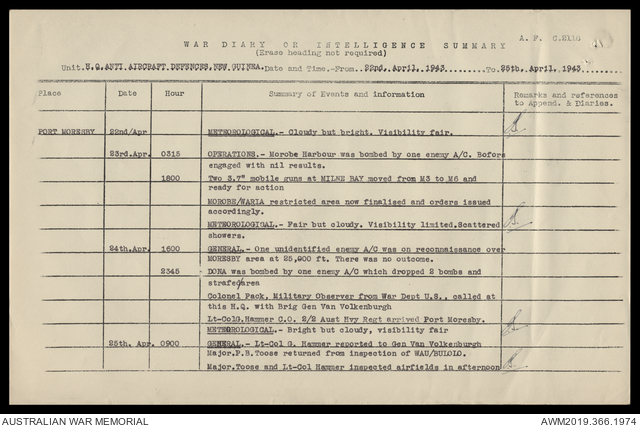 A. F. C.2118
WAR DIARY OR INTELLIGENCE SUMMARY
(Erase heading not required)
Unit.H.Q.ANTI AIRCRAFT DEFENCES,NEW GUINEA.Date and Time.-From..22nd.,April.,1943........To.25th.,April.,1943.
Place Date Hour Summary of Events and information Remarks and references
to Append. & Diaries.
PORT MORESBY 22nd/Apr METEOROLOGICAL.- Cloudy but bright. Visibility fair.
23rd.Apr. 0315 OPERATIONS.- Morobe Harbour was bombed by one enemy A/C. Bofors
engaged with nil results.
1800 Two 3.7" mobile guns at MILNE BAY moved from M3 to M6 and
ready for action
MOROBE/WARIA restricted area now finalised and orders issued
accordingly.
METEOROLOGICAL.- Fair but cloudy. Visibility limited.Scattered
showers.
24th.Apr. 1600 GENERAL.- One unidentified enemy A/C was on reconnaissance over
MORESBY area at 25,000 ft. There was no outcome.
2345 DONA was bombed by one enemy A/C which dropped 2 bombs and
strafed area
Colonel Pack, Military Observer from War Dept U.S., called at
this H.Q. with Brig Gen Van Volkenburgh
Lt-ColG.Hammer C.O. 2/2 Aust Hvy Regt arrived Port Moresby.
METEOROLOGICAL.- Bright but cloudy, visibility fair
25th. Apr. 0900 GENERAL.- Lt-Col G. Hammer reported to Gen Van Volkenburgh
Major.P.B.Toose returned from inspection of WAU/BULOLO.
Major.Toose and Lt-Col Hammer inspected airfields in afternoon
AUSTRALIAN WAR MEMORIAL AWM2019.366.1974